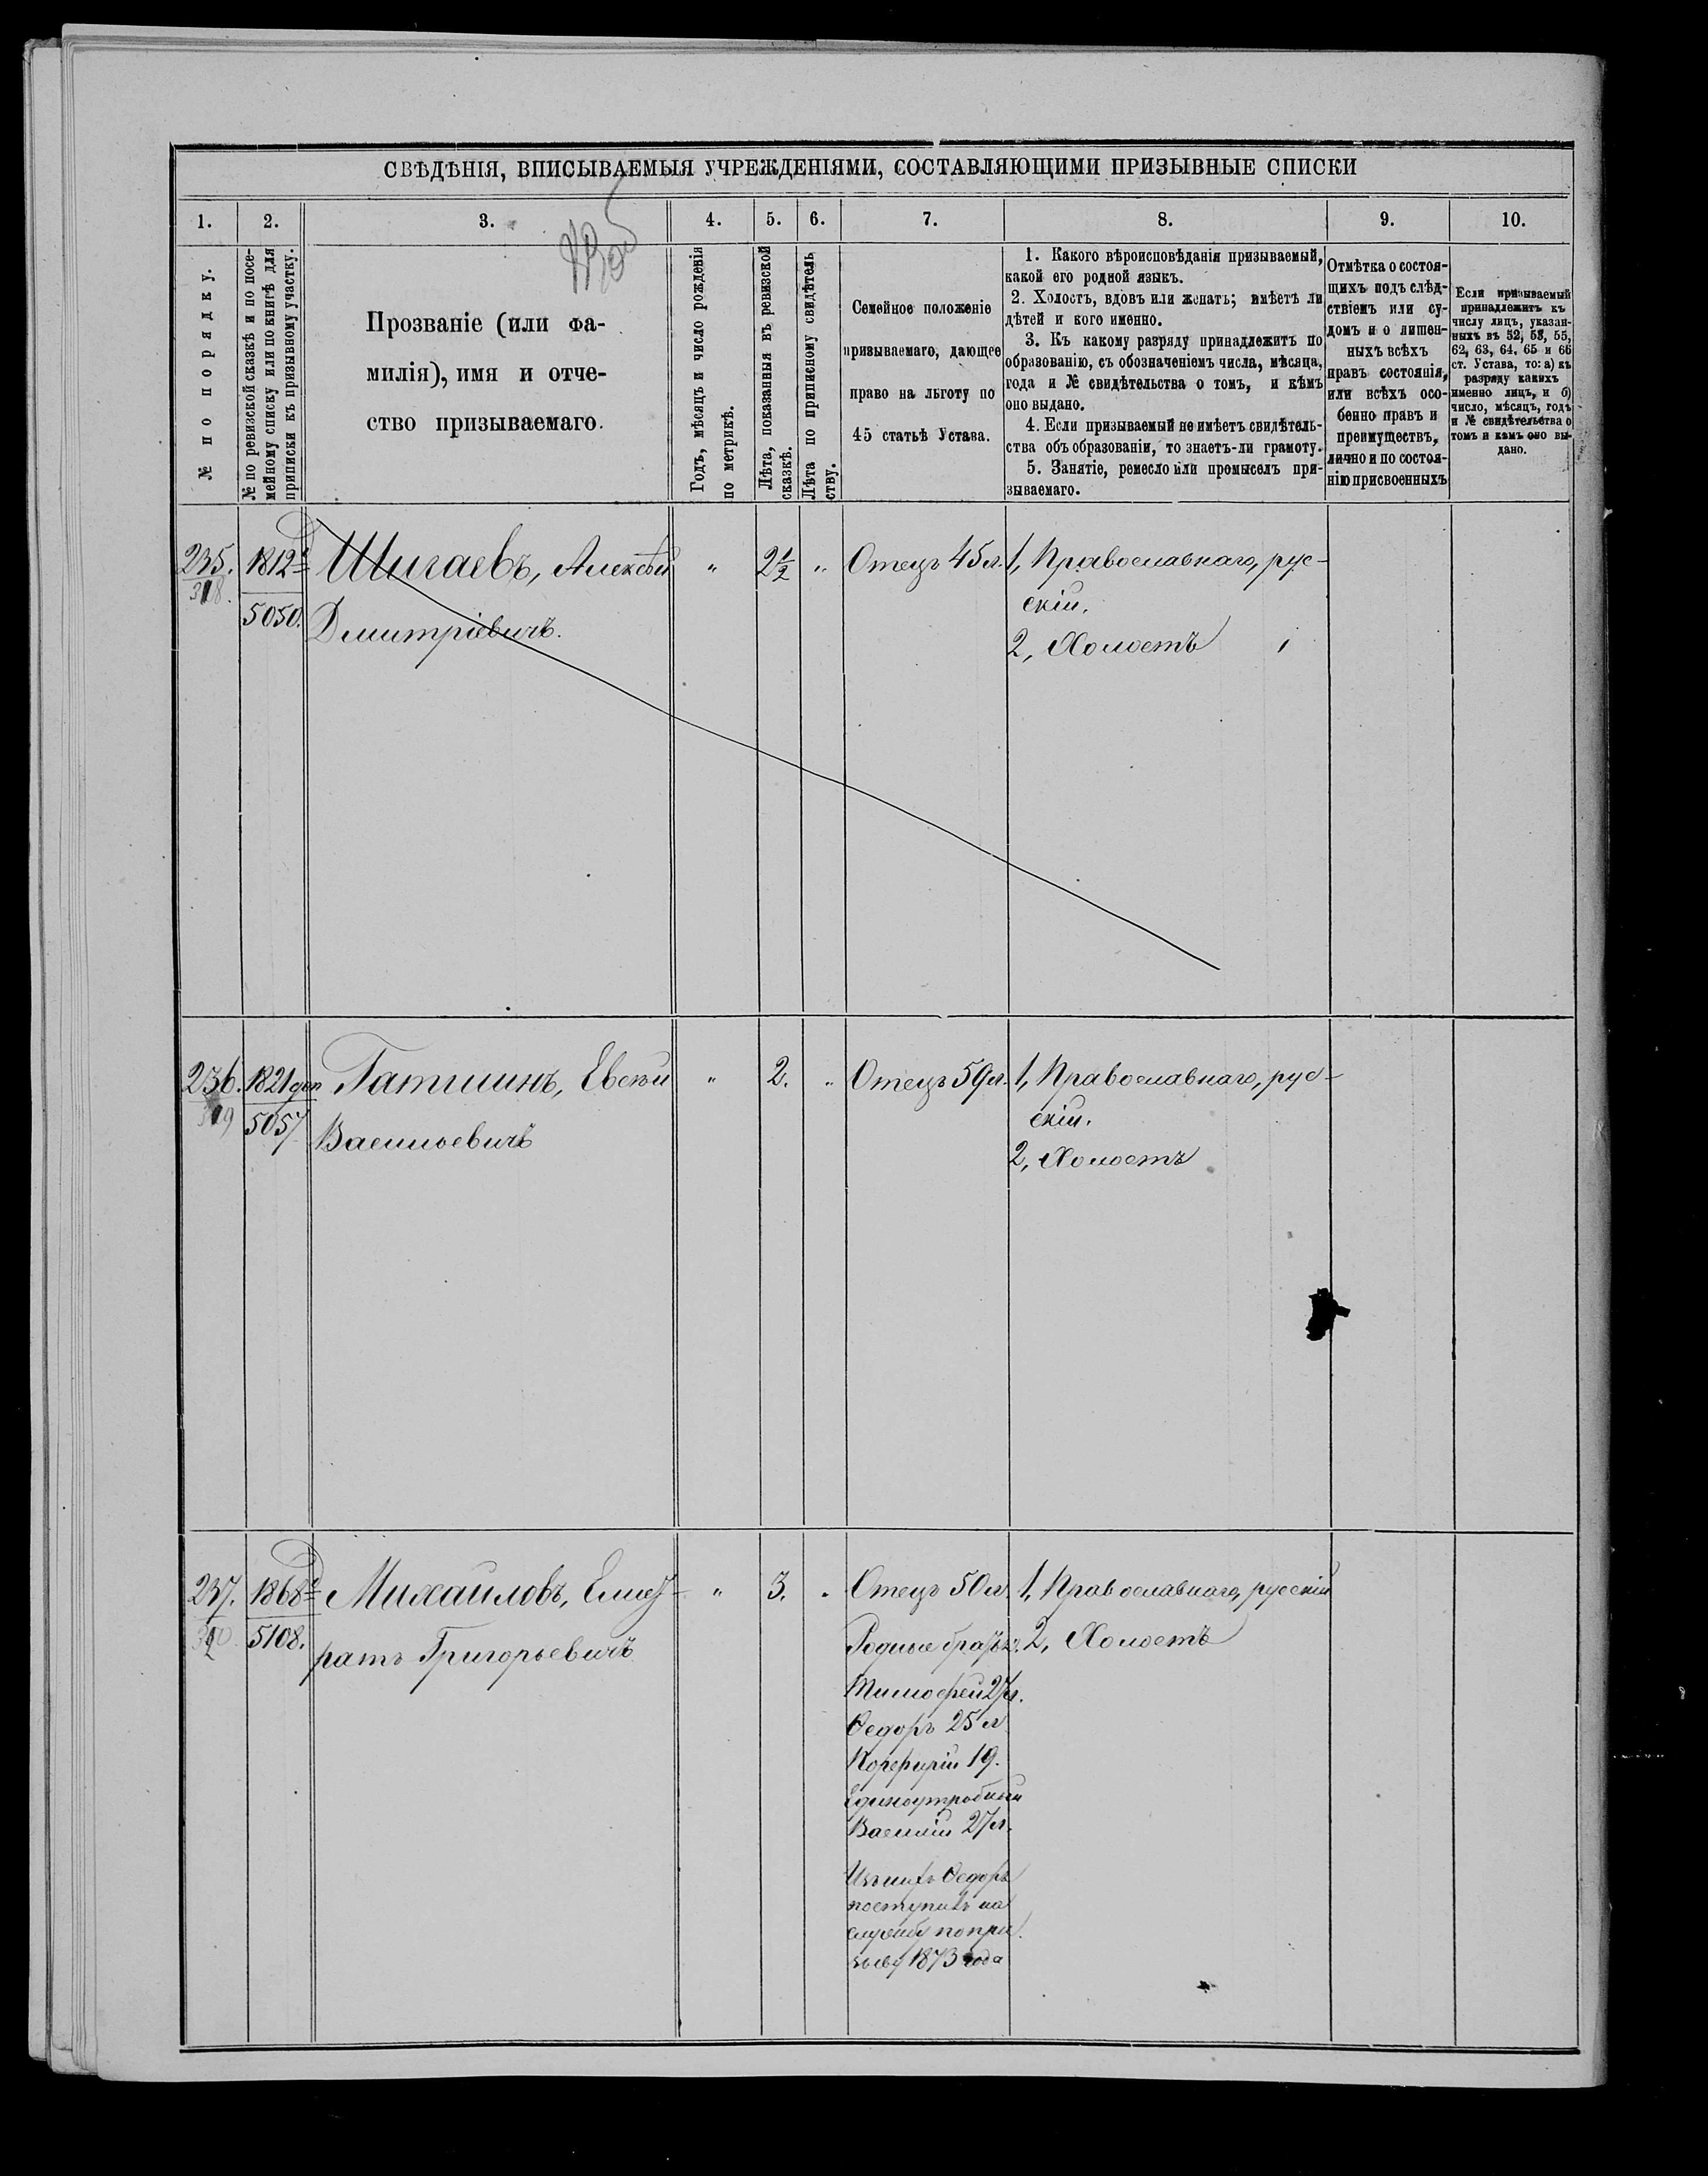 СВѢДѢНІЯ, ВПИСЫВАЕМЫЯ УЧРЕЖДЕНІЯМИ, СОСТАВЛЯЮЩИМИ ПРИЗЫВНЫЕ СПИСКИ
1. 2. 3. 4. 5. 6. 7. 8. 9. 10.
№ по порядку.
№ по ревизской сказкѣ и по посе-
мейному списку или по книгѣ для
приписки къ призывному участку.
Прозваніе (или фа-
милія), имя и отче-
ство призываемаго.
Годъ, мѣсяцъ и число рожденія
по метрикѣ.
Лѣта, показанныя въ ревизской
сказкѣ.
Лѣта по приписному свидѣтель
ству.
Семейное положеніе
призываемаго, дающее
право на льготу по
45 статьѣ Устава.
1. Какого вѣроисповѣданія призываемый,
какой его родной языкъ.
2. Холостъ, вдовъ или женатъ; имѣетъ ли
дѣтей и кого именно.
3. Къ какому разряду принадлежитъ по
образованію, съ обозначеніемъ числа, мѣсяца,
года и № свидѣтельства о томъ, и кѣмъ
оно выдано.
4. Если призываемый не имѣетъ свидѣтель-
ства объ образованіи, то знаетъ-ли грамоту.
5. Занятіе, ремесло или промыселъ при-
зываемаго.
Отмѣтка о состоя-
щихъ подъ слѣд-
ствіемъ или су-
домъ и о лишен-
ныхъ всѣхъ
правъ состоянія,
или всѣхъ осо-
бенно правъ и
преимуществъ,
лично и по состоя-
нію присвоенныхъ
Если призываемый
принадлежитъ къ
числу лицъ, указан-
ныхъ въ 52, 53, 55,
62, 63, 64, 65 и 66
ст. Устава, то: а) къ
разряду какихъ
именно лицъ, и б)
число, мѣсяцъ, годъ
и № свидѣтельства о
томъ и кѣмъ оно вы-
дано.
235. 1812 Шигаевъ, Алексѣй " 2½ " Отецъ 45 л. 1, Православнаго, рус-
318. 5050. Дмитріевичъ.
скій.
2, Холостъ
236. 1821 Гатилинъ, Евсѣй " 2. " Отецъ 59 л. 1, Православнаго, рус-
5057 Васильевичъ
скій.
2, Холостъ
237. 1868 Михайловъ, Елис " 3. " Отецъ 50 л. 1, Православнаго, русскій
5108. ратъ Григорьевичъ
2, Холостъ
Родные братья:
Тимофей 27 л.
Федоръ 25 л
Порфирій 19.
Единоутробный
Василій 27 л.
Изъ нихъ Федоръ
поступилъ на
службу по при
зыву 1873 года